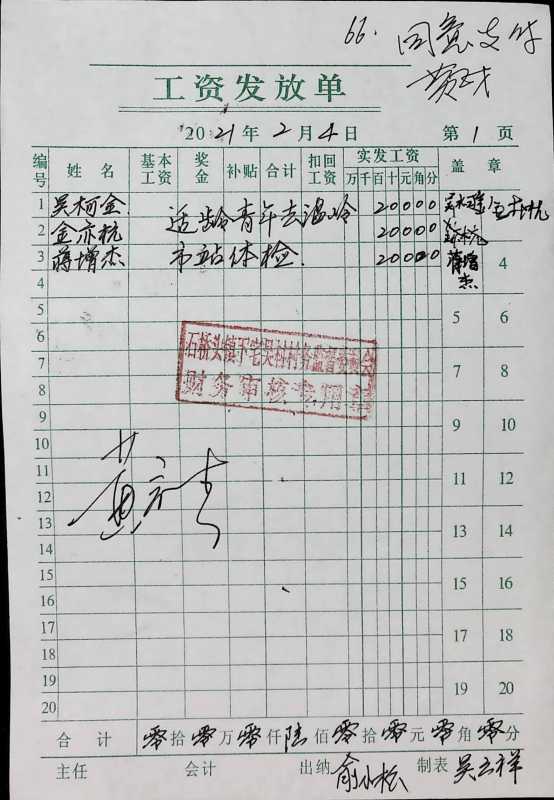 66. 同意支付
工资发放单
2021年2月4日 第1页
编号 姓名 基本工资 奖金 补贴 合计 扣回工资 实发工资 万千百十元角分 盖章
1 吴柯金 适龄青年去温岭 20000
2 金亦杭 20000
3 蒋增杰 市站体检. 20000 蒋增杰 4
4
5 5 6
6
7 7 8
8
9 9 10
10
11 11 12
12
13 13 14
14
15 15 16
16
17 17 18
18
19 19 20
20
石桥头镇下宅吴村村务监督委员会
财务审核专用章
合计 零拾零万零仟陆佰零拾零元零角零分
主任 会计 出纳 俞小松 制表 吴云祥